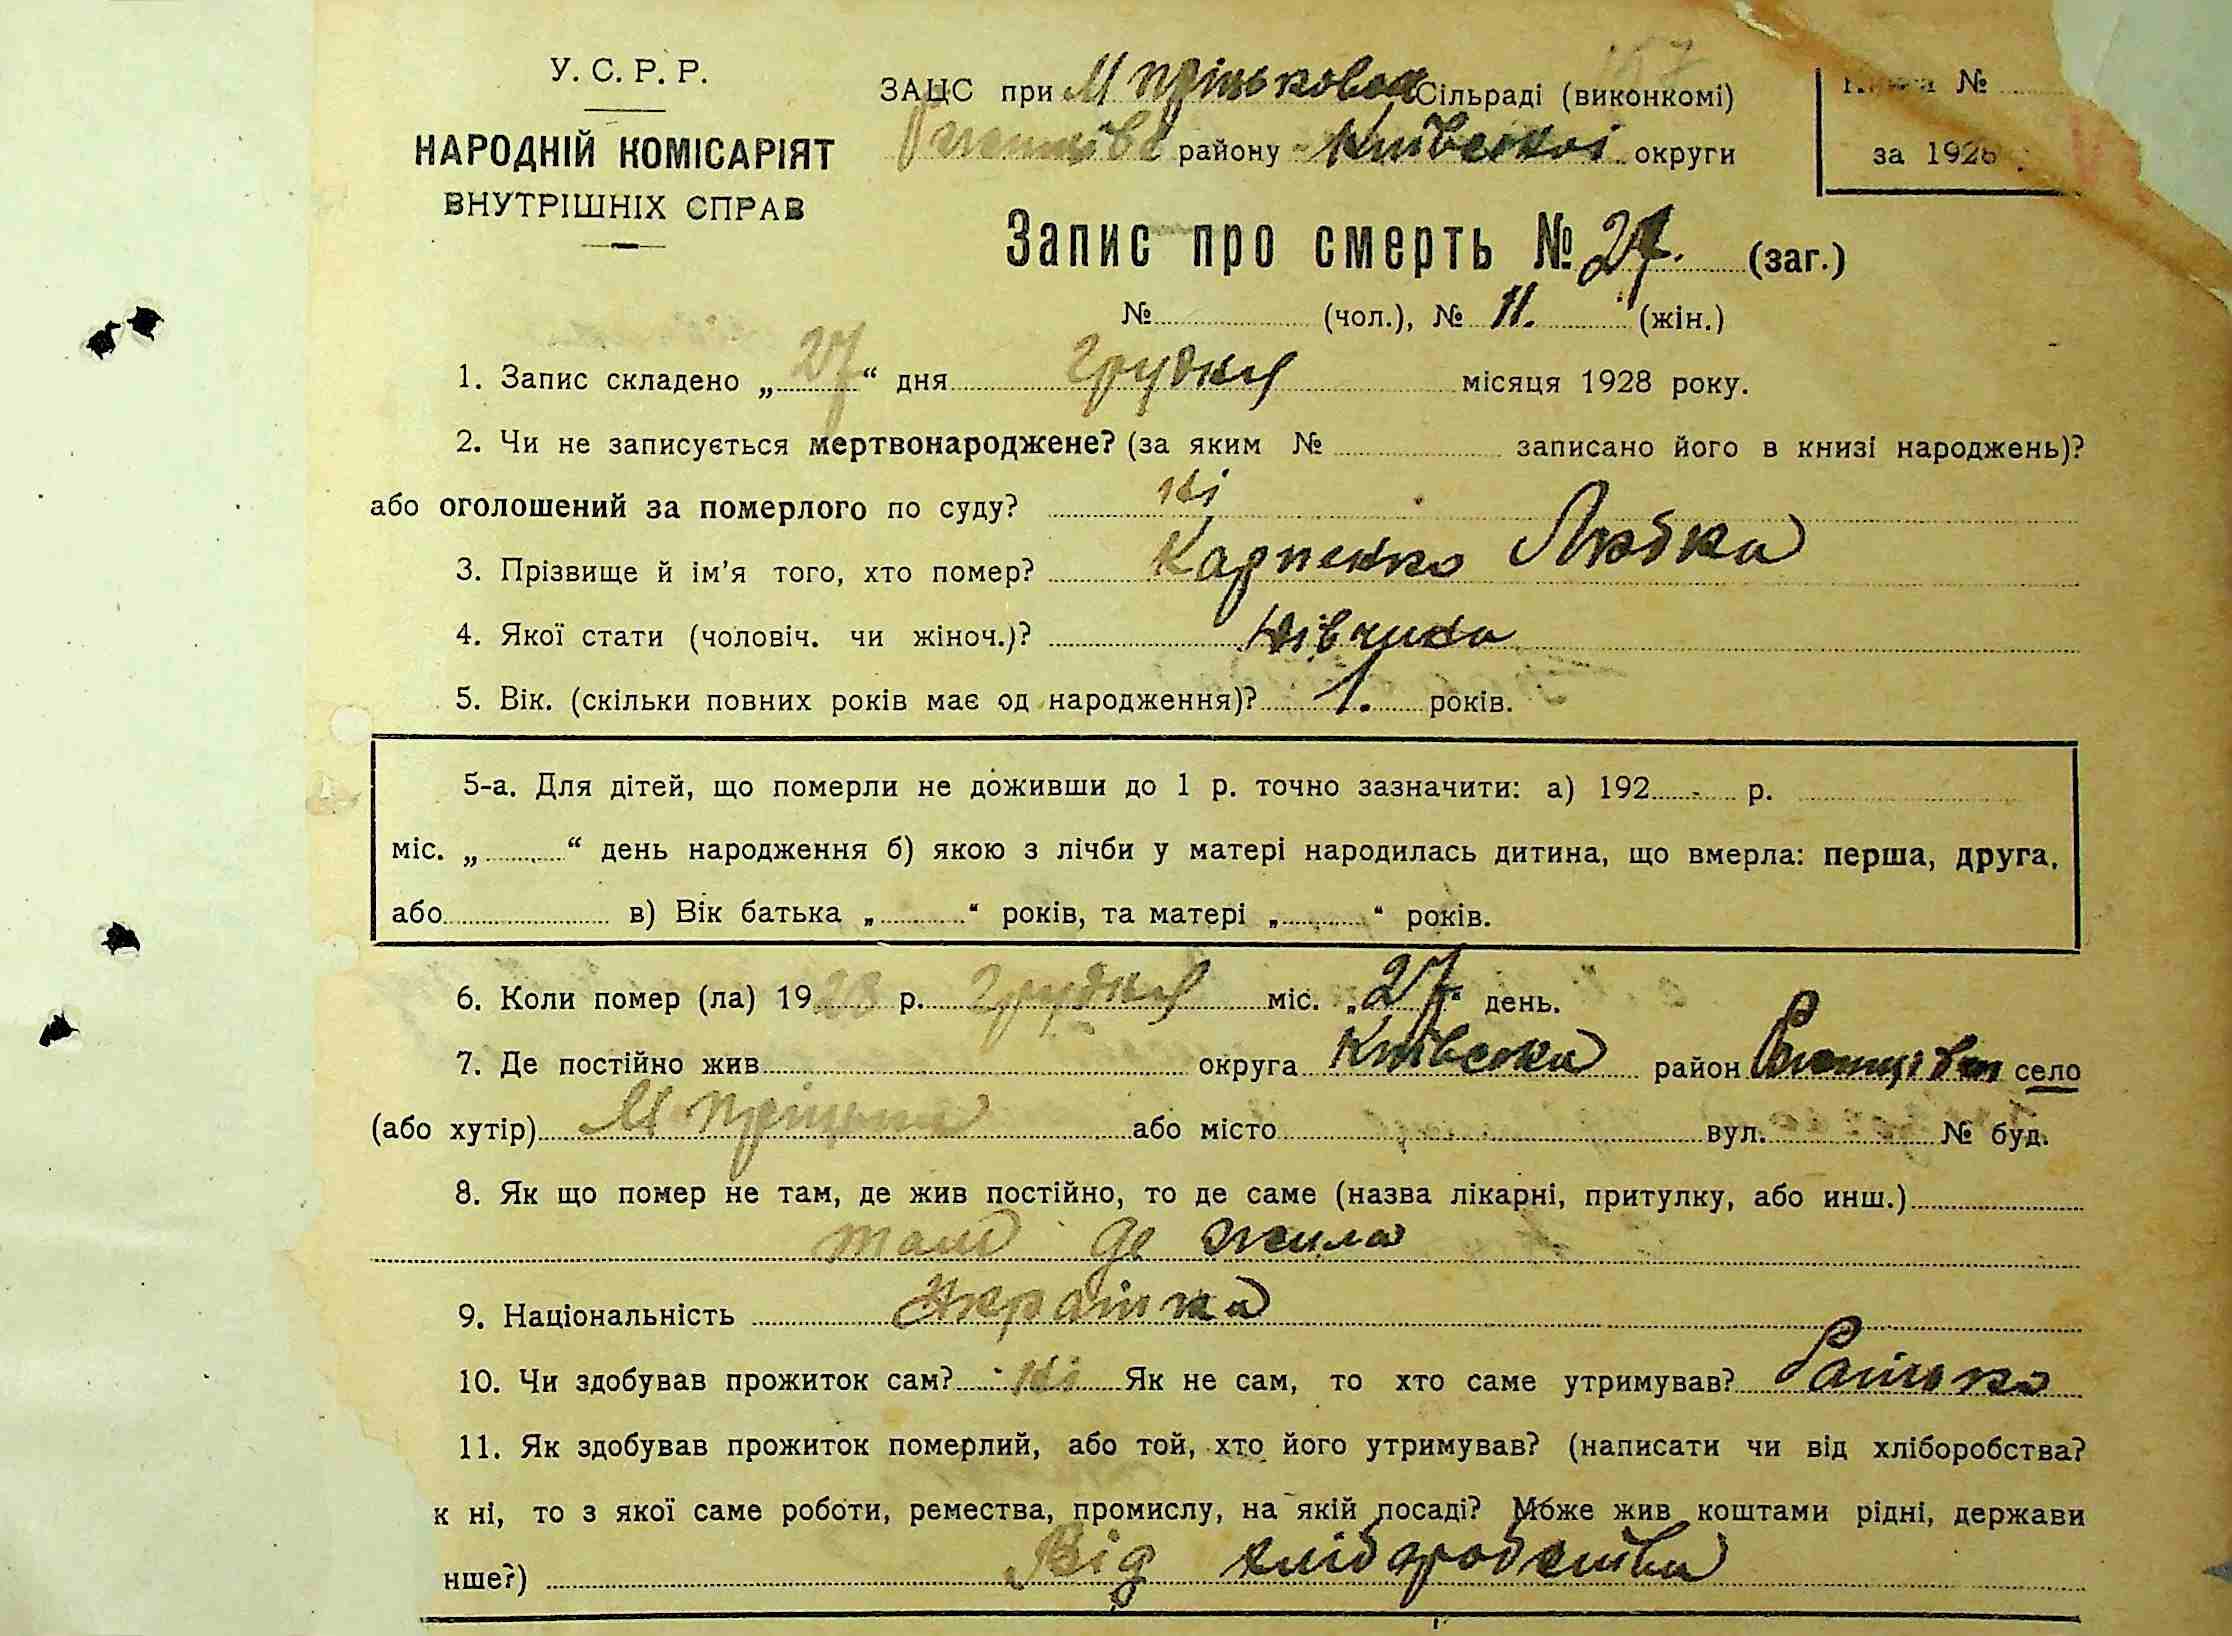 У. С. Р. Р.
НАРОДНІЙ КОМІСАРІЯТ
ВНУТРІШНІХ СПРАВ
ЗАЦС при М Пріцьковск Сільраді (виконкомі)
району Київської округи
№
за 1928
Запис про смерть № 27. (заг.)
№ (чол.), № 11. (жін.)
1. Запис складено „27“ дня Грудня місяця 1928 року.
2. Чи не записується мертвонароджене? (за яким № записано його в книзі народжень)?
або оголошений за померлого по суду? Ні
3. Прізвище й ім'я того, хто помер? Карпенко Любка
4. Якої стати (чоловіч. чи жіноч.)? Дівчина
5. Вік. (скільки повних років має од народження)? 1. років.
5-а. Для дітей, що померли не доживши до 1 р. точно зазначити: а) 192 р.
міс. „ “ день народження б) якою з лічби у матері народилась дитина, що вмерла: перша, друга,
або в) Вік батька „ “ років, та матері „ “ років.
6. Коли помер (ла) 1928 р. Грудня міс. „27“ день.
7. Де постійно жив округа Київська район село
(або хутір) М Пріцьки або місто вул. № буд.
8. Як що помер не там, де жив постійно, то де саме (назва лікарні, притулку, або инш.)
там де жила
9. Національність Українка
10. Чи здобував прожиток сам? Ні Як не сам, то хто саме утримував? Батько
11. Як здобував прожиток померлий, або той, хто його утримував? (написати чи від хліборобства?
к ні, то з якої саме роботи, ремества, промислу, на якій посаді? Може жив коштами рідні, держави
нше?) Від хліборобства